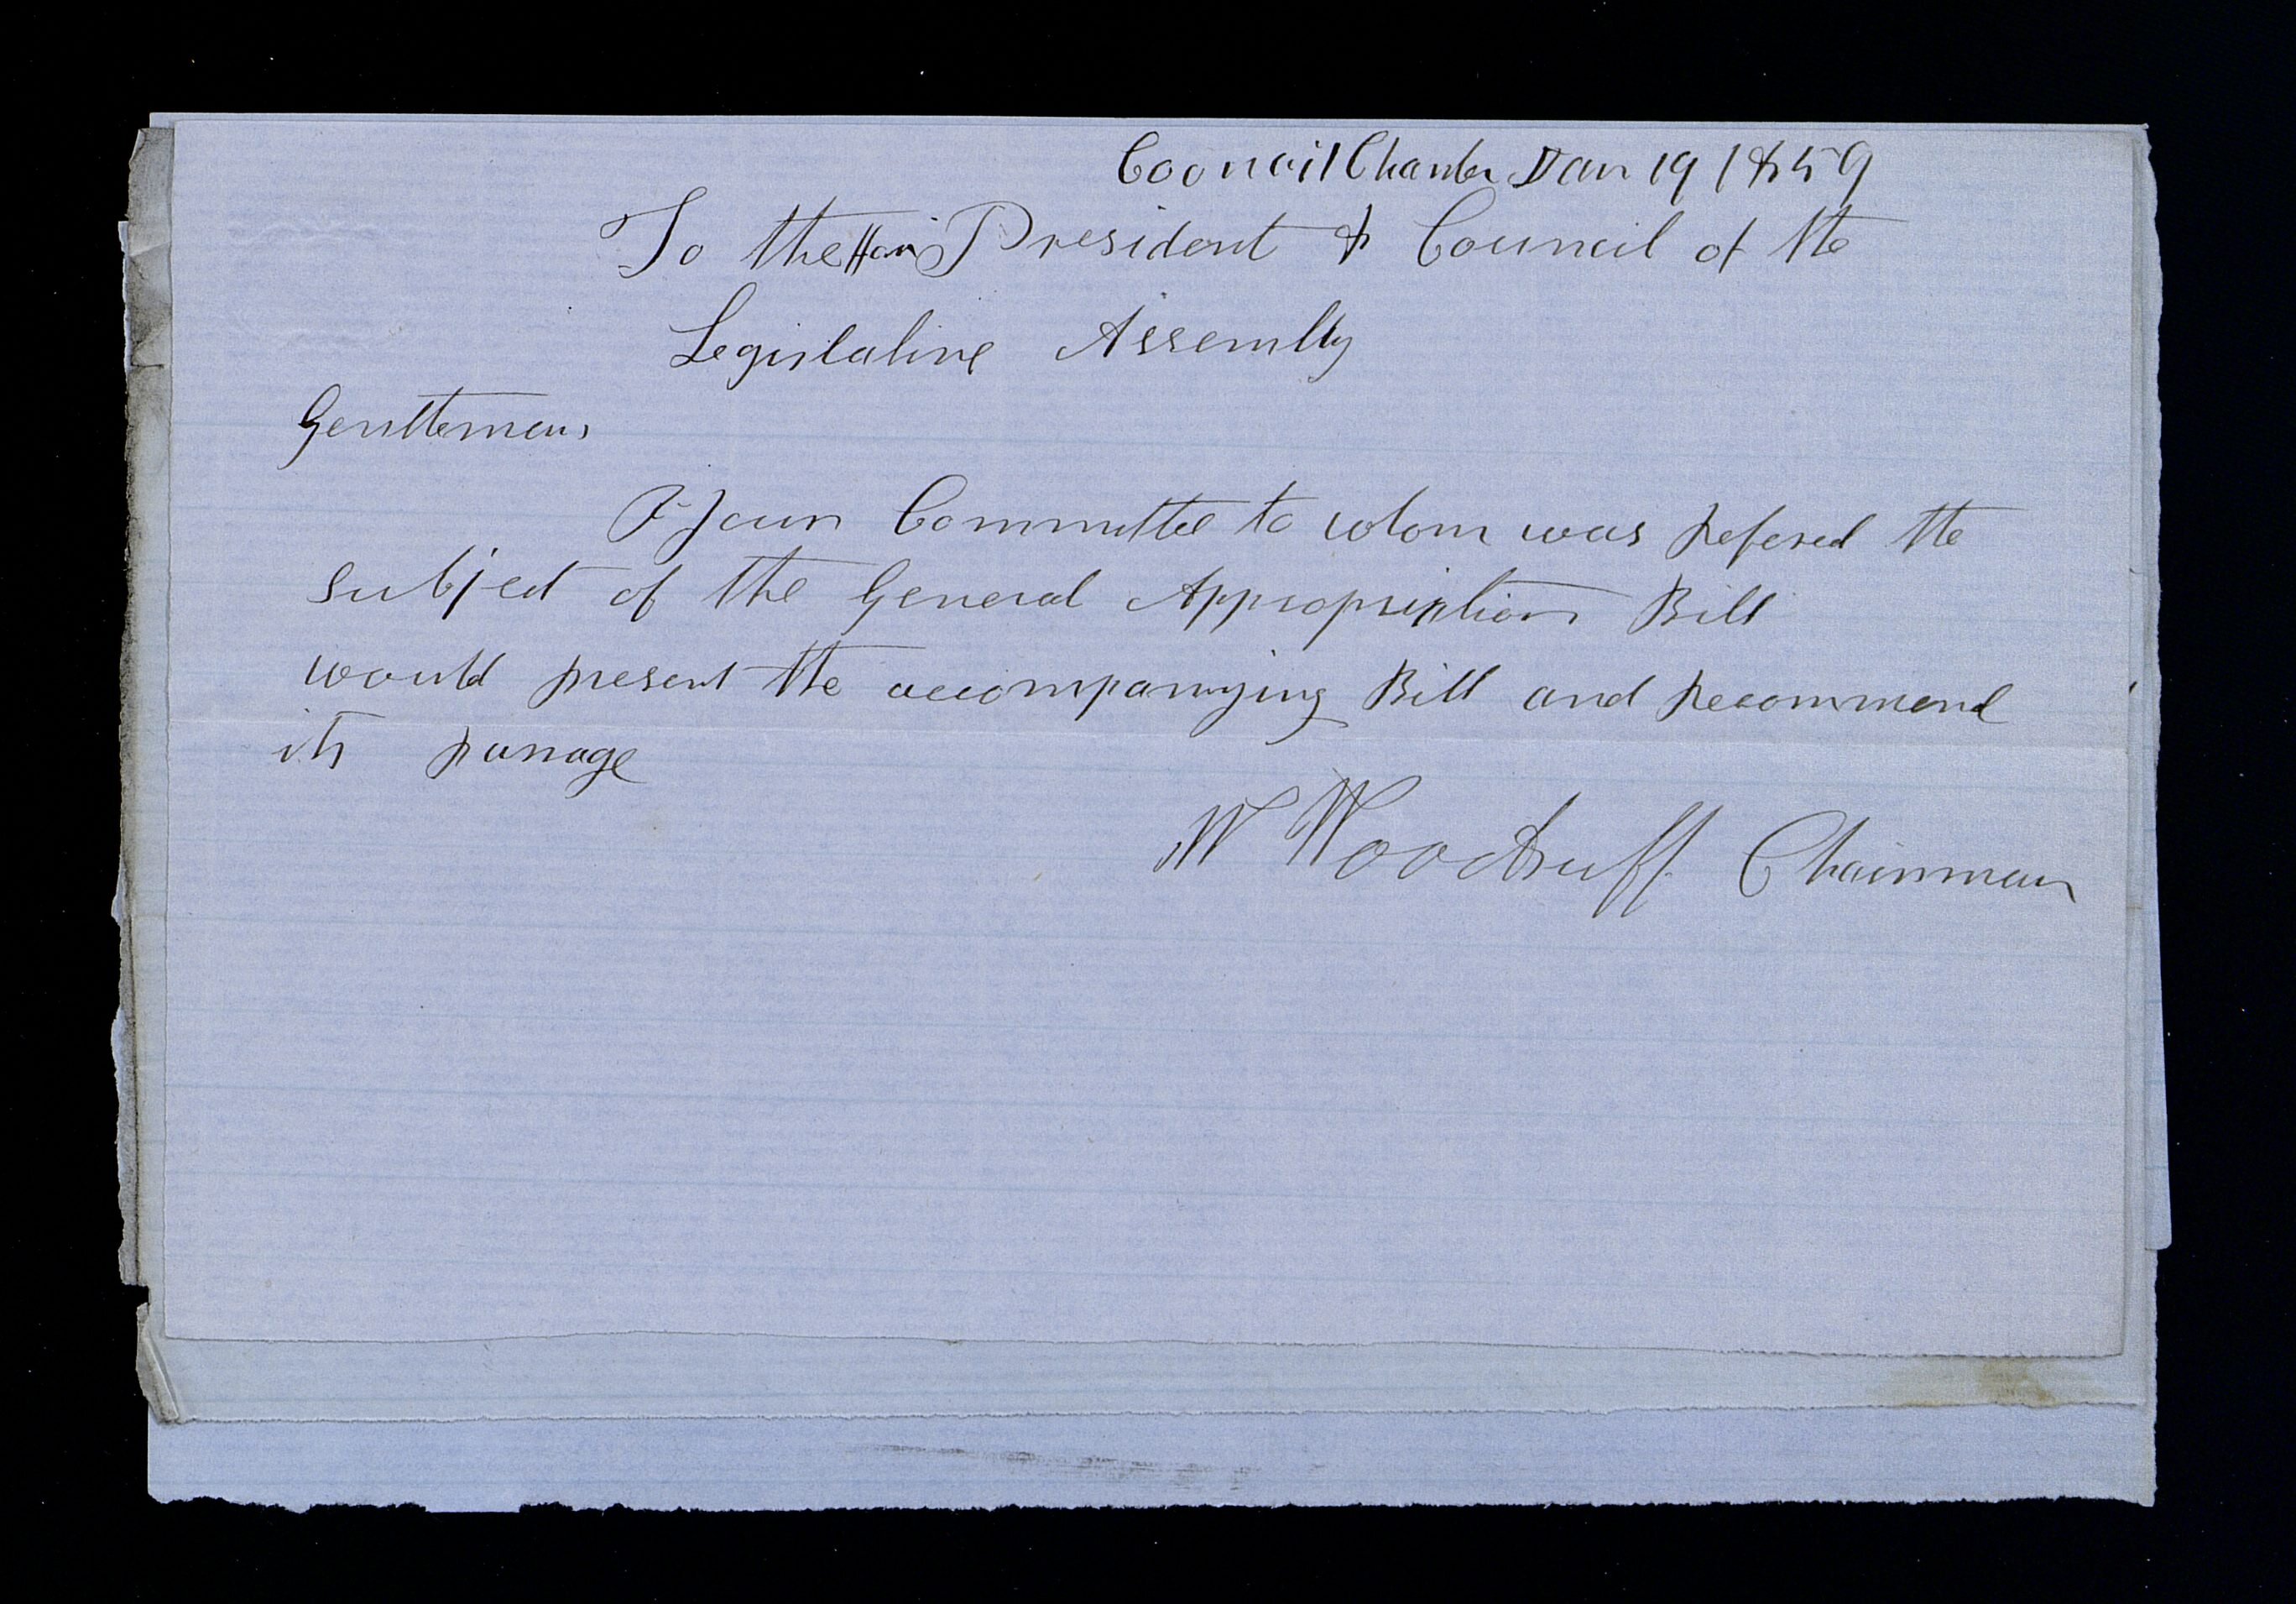 Council Chamber Jan 19 1859
To the Hon President & Council of the
Legislative Assembly
Gentlemen,
Your Committee to whom was refered the
subject of the General Appropriation Bill
would present the accompanying Bill and recommend
its passage
W Woodruff Chairman